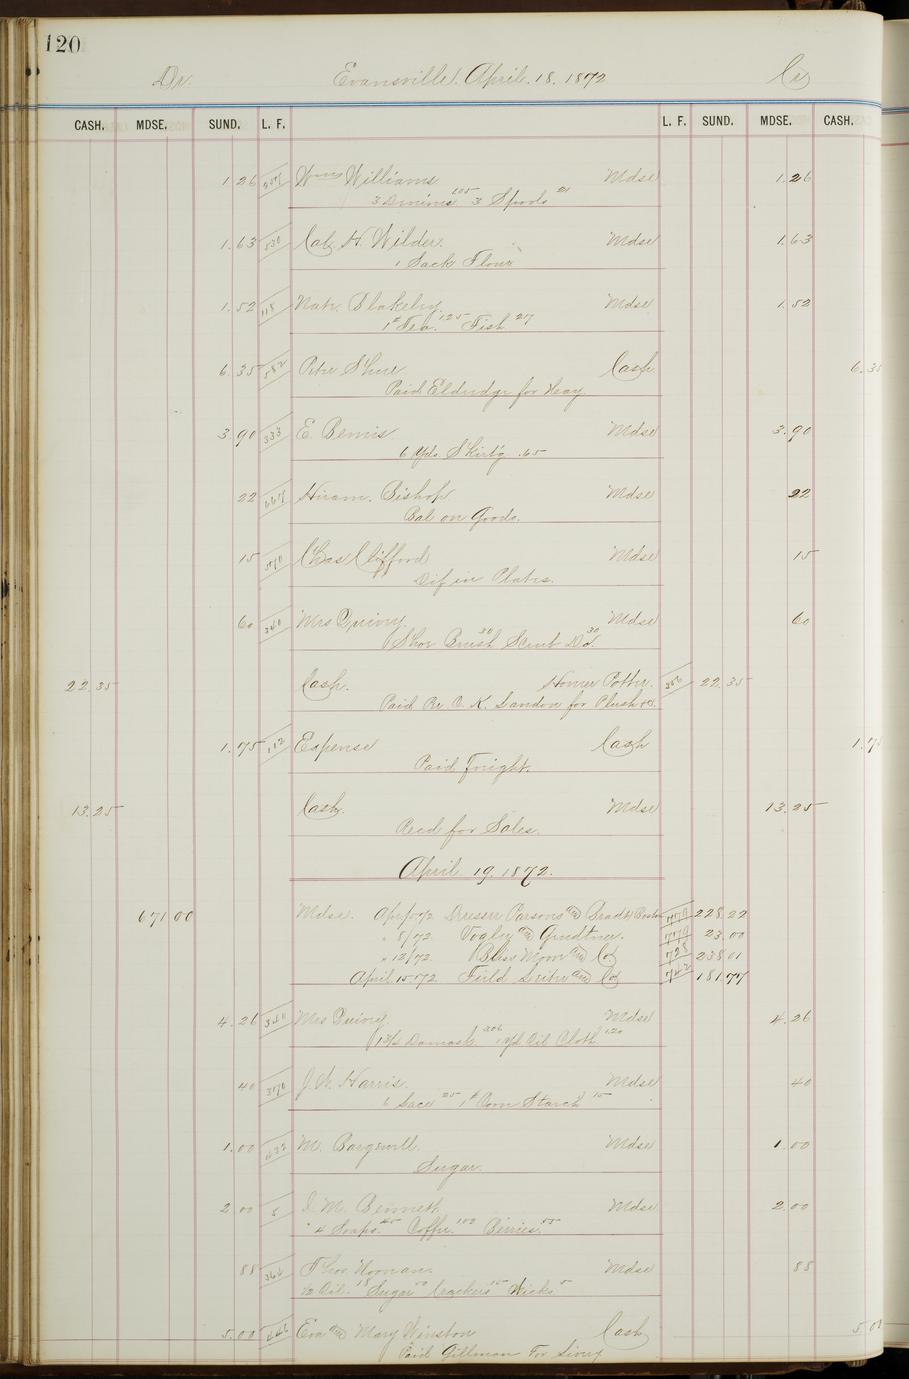 120
Dr. Evansville. April. 18. 1872 Cr
CASH. MDSE. SUND. L. F. L. F. SUND. MDSE. CASH.
1.26 Wms Williams Mdse 1.26
3 105 3 Spools 21
1.63 530 H. Wilder. Mdse 1.63
1 Sack Flour
1.52 118 Nath. Blakeley. Mdse 1.52
1# Tea. 125 Fish 27
6.35 582 Peter Shue Cash 6.35
Paid Eldredge for Heay
3.90 333 E. Bemis Mdse 3.90
6 Yds. Skirt'g .65
22 667 Hiram. Bishop Mdse 22
Bal on Goods.
15 Chas Clifford Mdse 15
Dif in Plates.
60 340 Mrs Quivey Mdse 60
1 Shoe Brush 30 Scrub Do. 30
22.35 Cash. Homer Potter. 356 22.35
Paid Pr. O. K. Landon for Plush &c.
1.75 112 Expense Cash 1.75
Paid Freight.
13.25 Cash. Mdse 13.25
Recd for Sales.
April 19. 1872.
671 00 Mdse. Apr 1/72 Dresser Parsons and Bradt Boston 228.22
" 8/72 Vogley and Gnudtner. 779 23.00
" 12/72 Bliss Moon and Co 728 238 01
April 15. 72. Field Leiter and Co 742 181.77
4.26 340 Mrs Quivey Mdse 4.26
1 3/4 Damask 306 1 yd Oil Cloth 120
40 370 J. W. Harris. Mdse 40
6 Lace 25 1# Corn Starch 15
1.00 432 M. Mdse 1.00
Sugar.
2 00 5 I. M. Bennett Mdse 2.00
4 Soaps. 45 Coffee. 100 Berries. 55
88 364 Thos. Noonan. Mdse 88
1/2 Oil. 18 Sugar 50 Crackers 15 Wicks 5
5.00 446 Eva and Mary Winston Cash 5.00
Paid Gillman For Livery